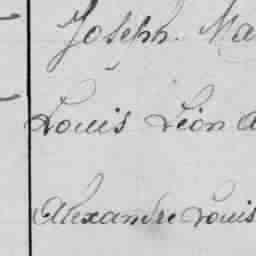 Joseph. Ma
Louis Léon A
Alexandre Louis